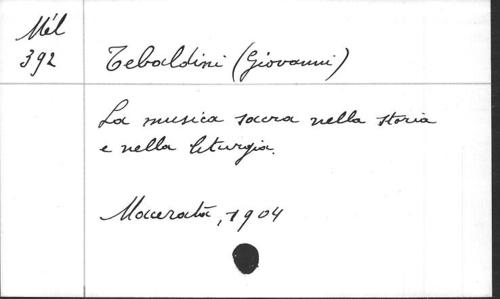 Mél
392
Tebaldini (Giovanni)
La musica sacra nella storia
e nella liturgia.
Macerata, 1904